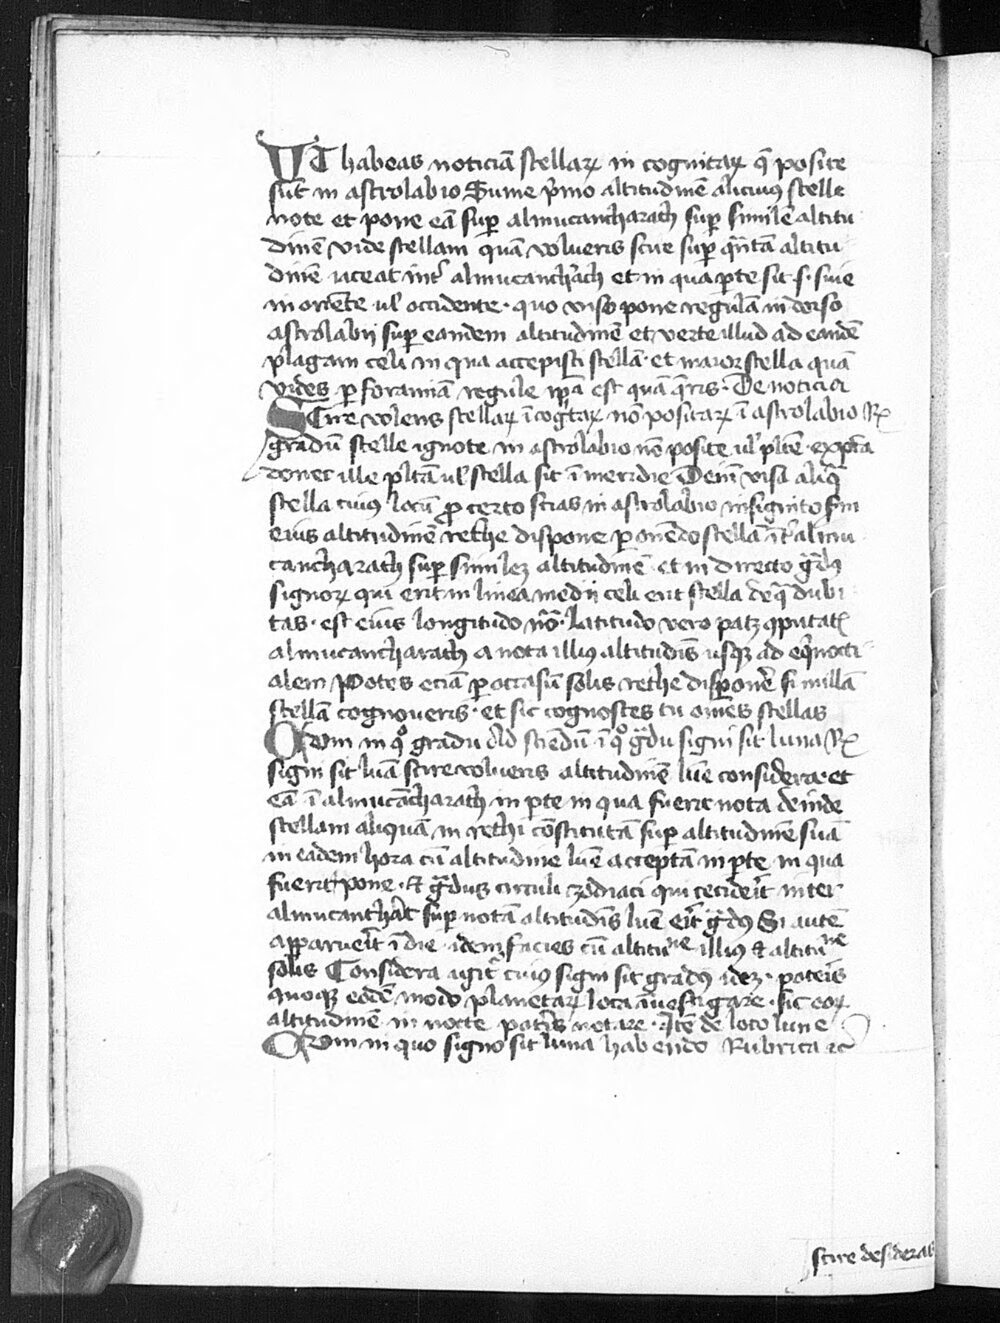 UT habeas noticiã stellaꝝ in cognitaꝝ q̃ posite
sũt in astrolabio Sume p̃mo altitudinẽ alicuius stelle
note et pone eã suꝑ almucancharach suꝑ similẽ altitu
dinẽ vide stellam quam volueris scire suꝑ q̃ntã altitu
dinẽ iaceat int̾ almucanch̾ach et in qua ꝑte sit · s · siue
in oriẽte ul̾ occidente · quo viso pone regulam in dorso
astrolabij suꝑ eamdem altitudinẽ et verte illud ad eandẽ
plagam celi in qua accepisti stellã · et maior stella quã
vides ꝑ foraminã regule ip̃a est quã q̃ris · De noticia
SCire volens stellaꝝ ĩcogtaꝝ nõ positaꝝ ĩ astrolabio ℞
gradũ stelle ignote in astrolabio nõ posite ul̾ pltẽ · expcta
donec ille pltã ul̾ stella sit ĩ meridie Deĩn visa aliq̃
stella cuius locũ ꝓ certo scias in astrolabio insignito scm
eius altitudinẽ rethe dispone ponẽdo stellã ĩt̾ almu
cancharach suꝑ similez altitudinẽ et in directo g̃dus
signoꝝ qui erit in linea medij celi erit stella de q̃ dubi
tas · est eius longitudo nõ · Latitudo vero patz ꝯputatis
almucancharach a nota illius altitudis usqꝫ ad eq̃nocti
alem Potes eciã ꝑ occasũ solis rethe disponẽ si nullã
stellã cognoueris · et sic cognosces tu omẽs stellas
QVom in q̊ gradu Ad sciẽdũ ĩ q̊ g̃du signi sit luna ℞
signi sit luã scire volueris altitudinẽ lũe considera · et
eã ĩ almucãcharach in ꝑte in qua fuerit nota deinde
stellam aliquã in rethi cõstitutã suꝑ altitudinẽ suã
in eadem hora cũ altitudine lũe acceptã in ꝑte in qua
fuerit pone · Et g̃dus circuli zodiaci qui cecider̃it inter
almucanthãt suꝑ notã altitudĩs lũe erit g̃dus Si autẽ
apparuer̃it ĩ die · idem facies cũ altituⁿᵉ illius Et altituⁿᵉ
solis Considera igit̾ cuius signi sit gradus idez · poteris
quoqꝫ eodẽ modo planetaꝝ loca ĩuestigare · sic eoꝝ
altitudinẽ in nocte pot̾is notare · Itẽ de loco lune
QVom in quo signo sit luna habendo Rubrica ic
scire desideras